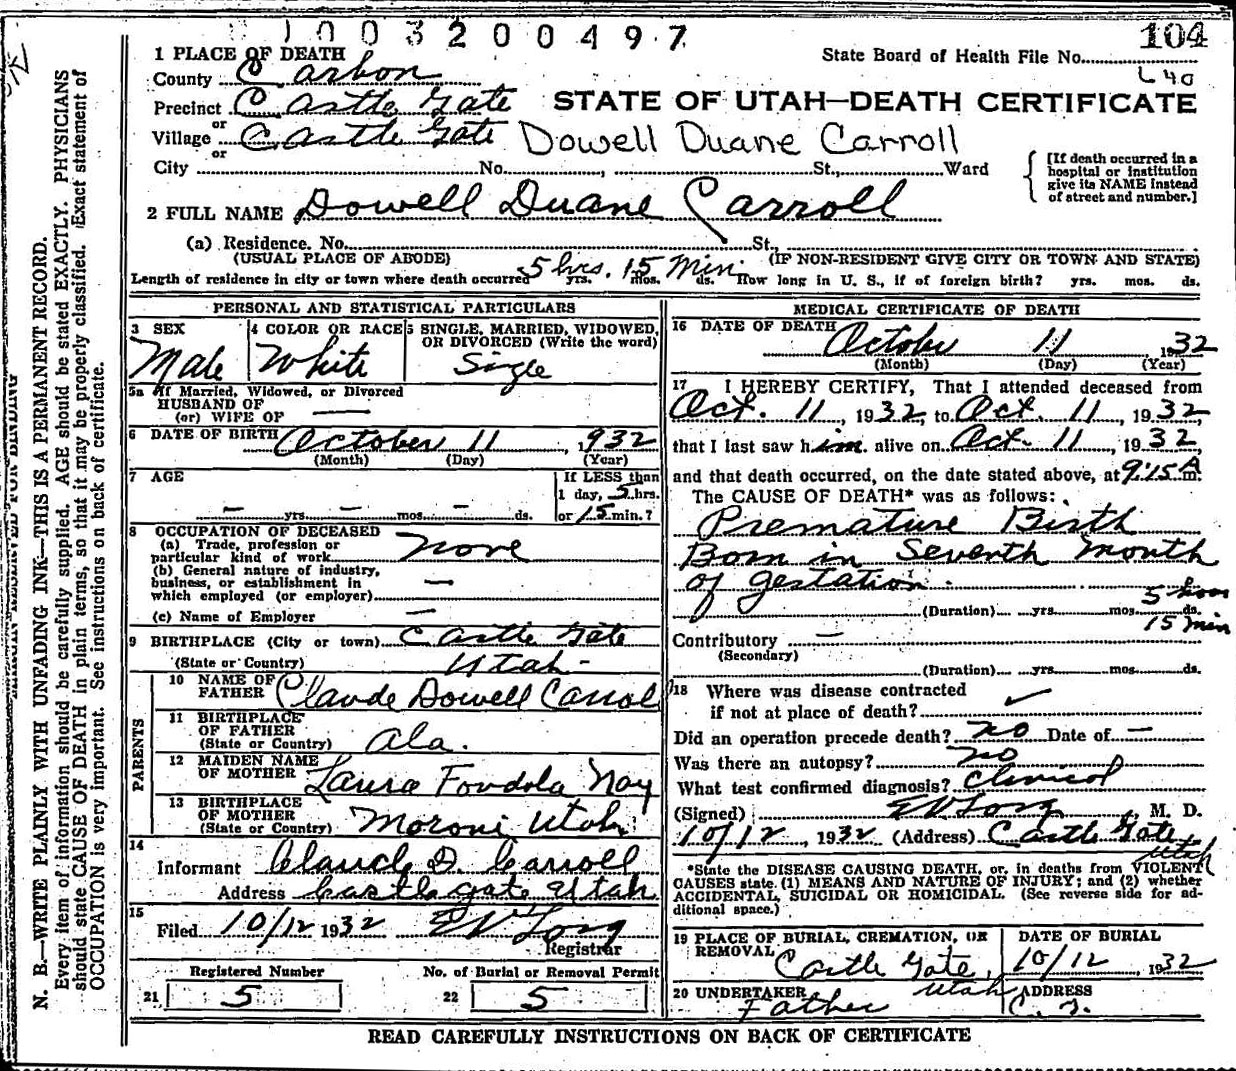 1003200497
104
State Board of Health File No.
L40
1 PLACE OF DEATH
County Carbon
Precinct Castle Gate
STATE OF UTAH—DEATH CERTIFICATE
or
Village Castle Gate Dowell Duane Carroll
or
City No. , St., Ward
[If death occurred in a hospital or institution give its NAME instead of street and number.]
2 FULL NAME Dowell Duane Carroll
(a) Residence. No. St.,
(USUAL PLACE OF ABODE) (IF NON-RESIDENT GIVE CITY OR TOWN AND STATE)
Length of residence in city or town where death occurred 5 hrs. 15 Min. yrs. mos. ds. How long in U. S., if of foreign birth? yrs. mos. ds.
PERSONAL AND STATISTICAL PARTICULARS
3 SEX
Male
4 COLOR OR RACE
White
5 SINGLE, MARRIED, WIDOWED, OR DIVORCED (Write the word)
Single
5a If Married, Widowed, or Divorced
HUSBAND OF
(or) WIFE OF —
6 DATE OF BIRTH October 11, 1932
(Month) (Day) (Year)
7 AGE
— yrs. — mos. — ds.
If LESS than
1 day, 5 hrs.
or 15 min.?
8 OCCUPATION OF DECEASED
(a) Trade, profession or
particular kind of work none
(b) General nature of industry,
business, or establishment in
which employed (or employer) —
(c) Name of Employer —
9 BIRTHPLACE (City or town) Castle Gate
(State or Country) Utah -
PARENTS
10 NAME OF
FATHER Claude Dowell Carrol
11 BIRTHPLACE
OF FATHER
(State or Country) Ala.
12 MAIDEN NAME
OF MOTHER Laura Fondola Nay
13 BIRTHPLACE
OF MOTHER
(State or Country) Moroni Utah
14
Informant Claude D. Carroll
Address Castle gate Utah
15
Filed 10/12 1932 EV Long
Registrar
Registered Number
21 5
No. of Burial or Removal Permit
22 5
MEDICAL CERTIFICATE OF DEATH
16 DATE OF DEATH
October 11 1932
(Month) (Day) (Year)
17 I HEREBY CERTIFY, That I attended deceased from
Oct. 11, 1932, to Oct. 11, 1932,
that I last saw him alive on Oct. 11, 1932,
and that death occurred, on the date stated above, at 9:15 A m.
The CAUSE OF DEATH* was as follows:
Premature Birth
Born in Seventh Month
of gestation.
5 hours
(Duration) yrs. mos. ds.
15 min
Contributory —
(Secondary)
(Duration) yrs. mos. ds.
18 Where was disease contracted
if not at place of death?
Did an operation precede death? no Date of —
Was there an autopsy? no
What test confirmed diagnosis? Clinical
(Signed) EV Long, M. D.
10/12, 1932 (Address) Castle Gate
Utah
*State the DISEASE CAUSING DEATH, or, in deaths from VIOLENT
CAUSES state (1) MEANS AND NATURE OF INJURY; and (2) whether
ACCIDENTAL, SUICIDAL OR HOMICIDAL. (See reverse side for ad-
ditional space.)
19 PLACE OF BURIAL, CREMATION, OR
REMOVAL
Castle Gate,
Utah
DATE OF BURIAL
10/12, 1932
20 UNDERTAKER
Father
ADDRESS
C. G.
READ CAREFULLY INSTRUCTIONS ON BACK OF CERTIFICATE
N. B.—WRITE PLAINLY WITH UNFADING INK—THIS IS A PERMANENT RECORD.
Every item of information should be carefully supplied. AGE should be stated EXACTLY. PHYSICIANS
should state CAUSE OF DEATH in plain terms, so that it may be properly classified. Exact statement of
OCCUPATION is very important. See instructions on back of certificate.